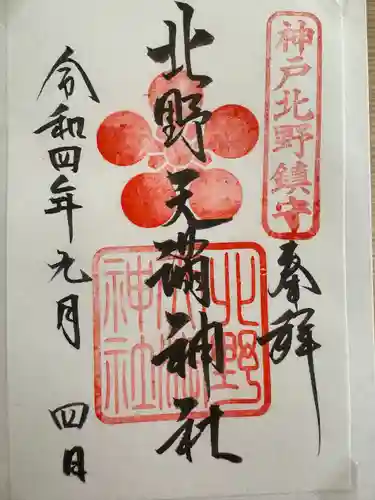 神戸北野鎮守
奉拝
北野天満神社
北野天満神社
令和四年九月四日